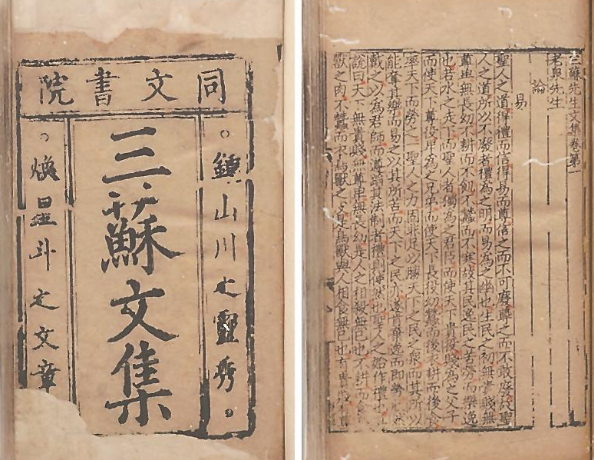 同文書院
鍾山川之靈秀
三蘇文集
煥星斗之文章
三蘇先生文集卷第一
老泉先生
論
易
聖人之道得禮而信得易而尊信之而不可廢尊之而不敢廢故聖
人之道所以不廢者禮為之明而易為之幽也生民之初無貴賤無
尊卑無長幼不耕而不飢不蠶而不寒故其民逸民之苦勞而樂逸
也若水之走下而聖人者獨為之君臣而使天下貴役賤為之父子
而使天下尊役卑為之兄弟而使天下長役幼蠶而後衣耕而後食
率天下而勞之一聖人之力固非足以勝天下之民之衆而其所以
能奪其樂而易之以其所苦而天下之民亦遂肯棄逸而即勞欣然
戴之以為君師而遵蹈其法制者禮則使然也聖人之始作禮也其
說曰天下無貴賤無尊卑無長幼是人之相殺無已也不耕而食鳥
獸之肉不蠶而衣鳥獸之皮是鳥獸與人相食無已也